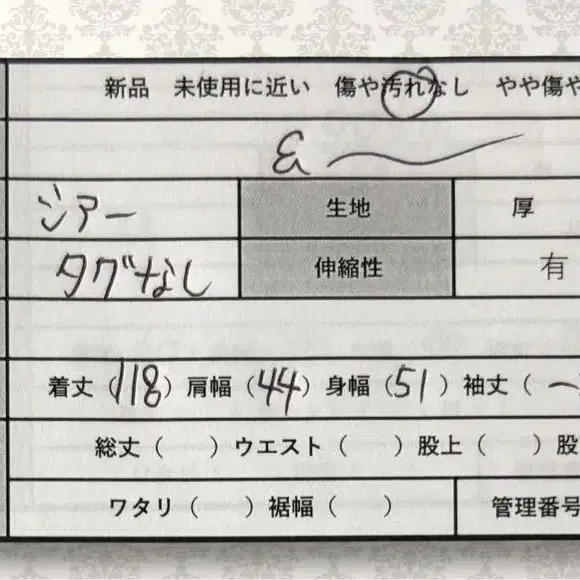 新品 未使用に近い 傷や汚れなし やや傷や
シアー 生地 厚
タグなし 伸縮性 有
着丈(118)肩幅(44)身幅(51)袖丈(
総丈( )ウエスト( )股上( )股
ワタリ( )裾幅( ) 管理番号